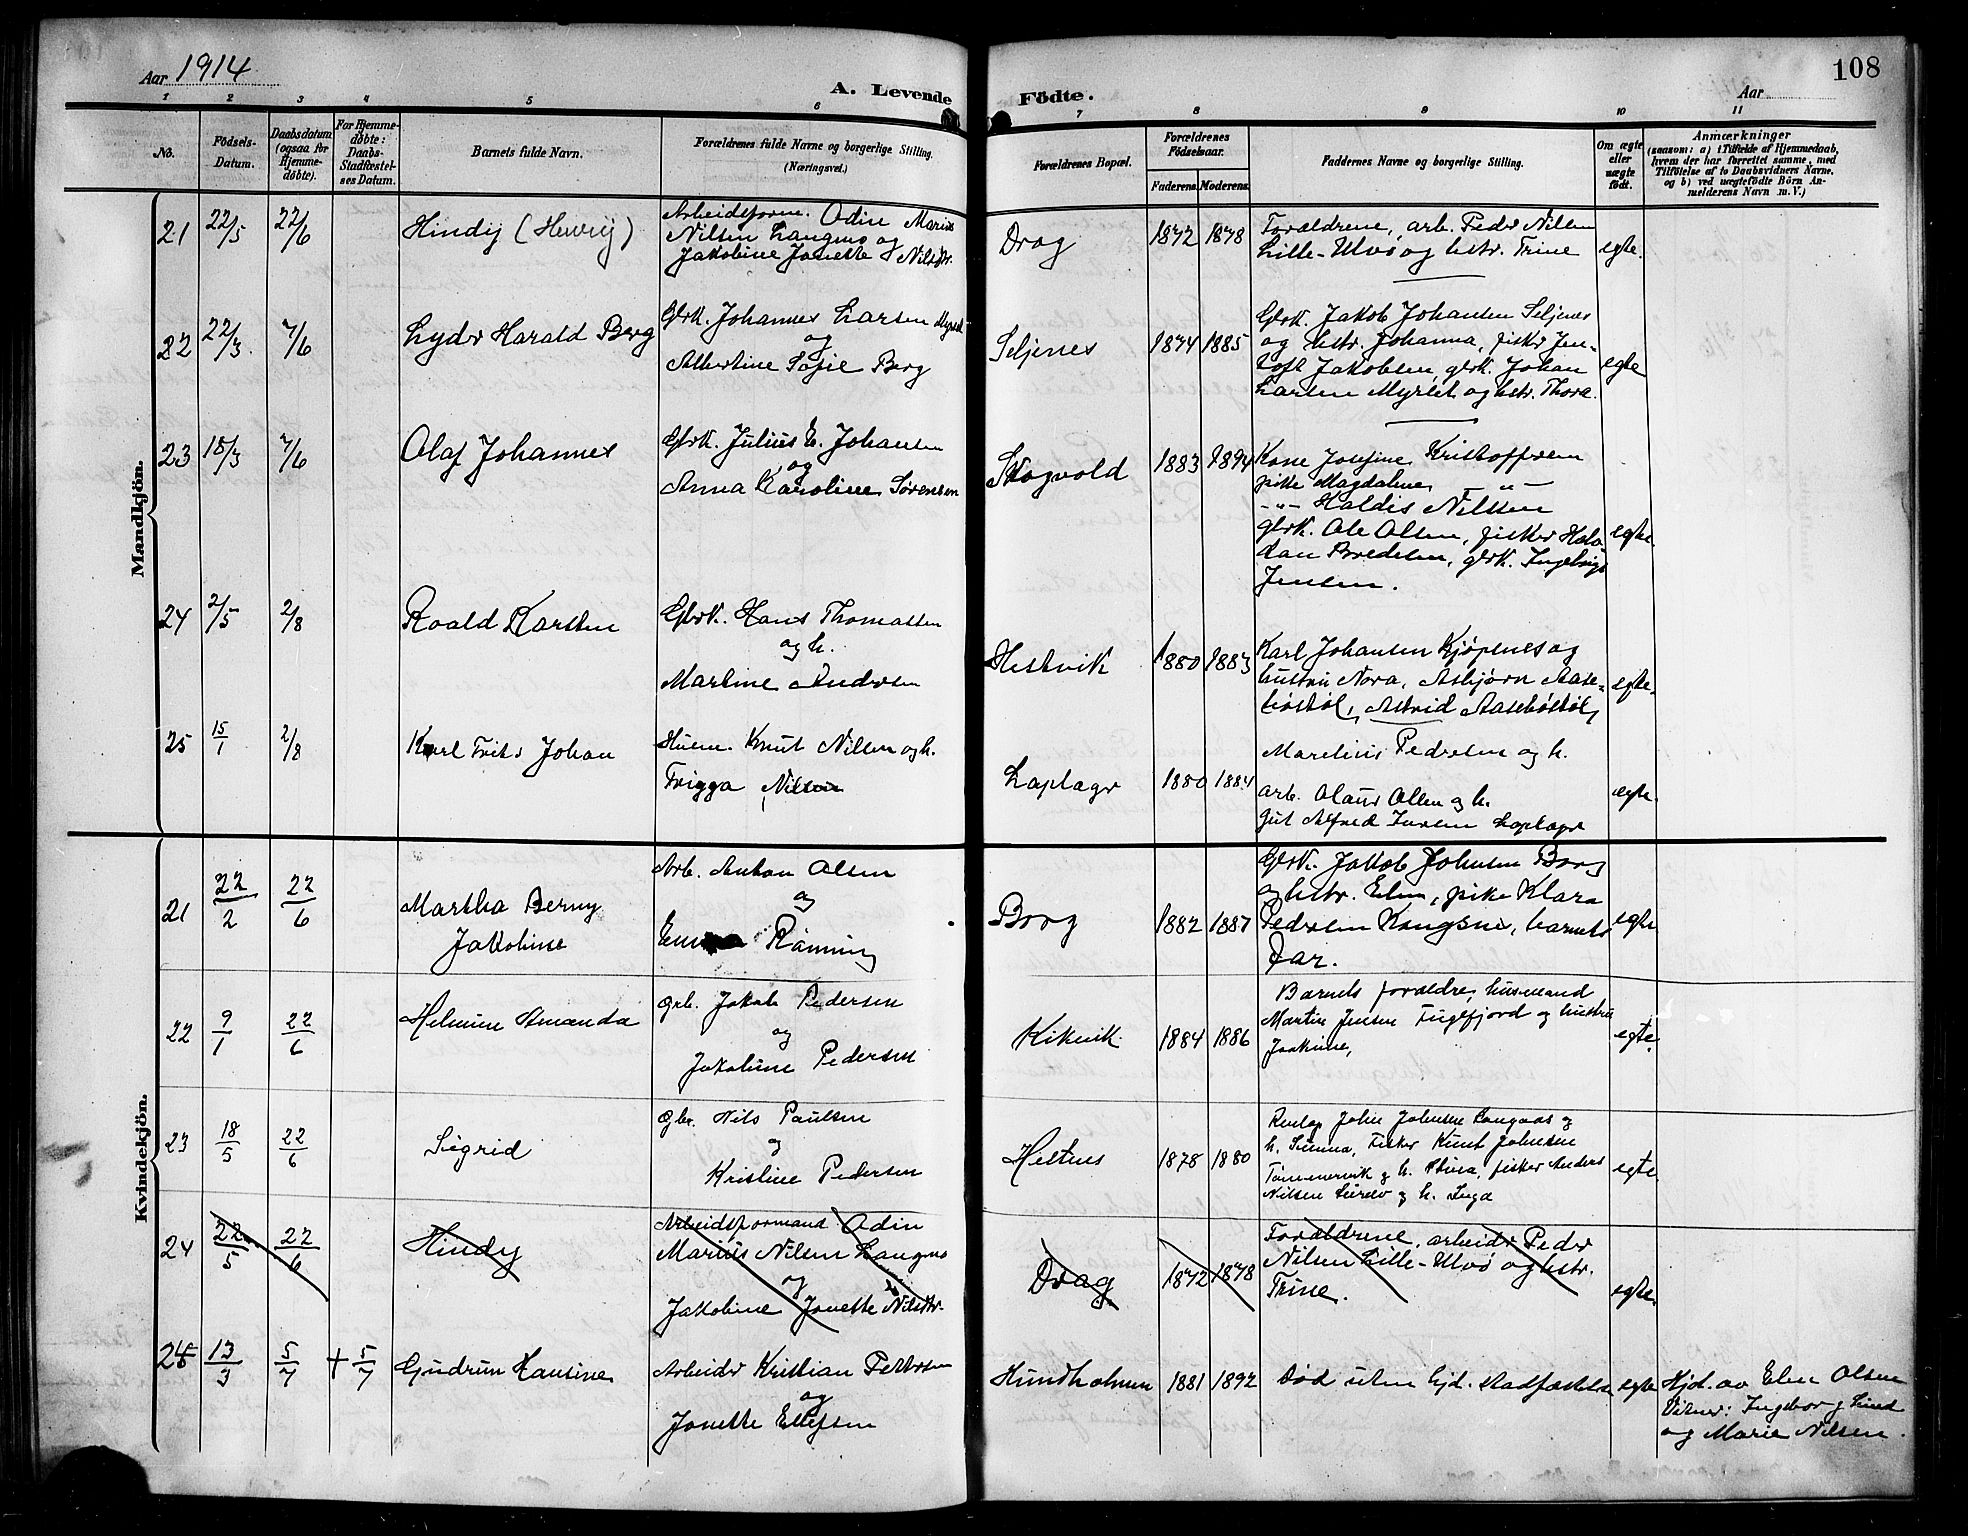 Aar 1914
A. Levende Födte.
Aar
108
1 2 3 4 5 6 7 8 9 10 11
No.
Födsels-
Datum.
Daabsdatum
(ogsaa for
Hjemme-
døbte).
For Hjemme-
døbte:
Daabs-
Stadfæstel-
ses Datum.
Barnets fulde Navn.
Forældrenes fulde Navne og borgerlige Stilling.
(Næringsvei.)
Forældrenes Bopæl.
Forældrenes
Födselsaar.
Faderens. Moderens.
Faddernes Navne og borgerlige Stilling.
Om ægte
eller
uægte
født.
Anmærkninger
(saasom: a) i Tilfælde af Hjemmedaab,
hvem der har forrettet samme, med
Tilföielse af to Daabsvidners Navne,
og b) ved uægtefödte Börn An-
melderens Navn m. V.)
Mandkjön.
21 22/5 22/6 Hindij (Henrij)
Arbeidsform. Odin Marius
Nilsen Langmo og
Jakobine Jonette Nilsdtr.
Drag 1872 1878
Forældrene, arb. Peder Nilsen
Lille-Ulvø og hstr. Trine
egte.
22 22/3 7/6 Lyder Harald Berg
Gbrk. Johannes Larsen
og
Albertine Sofie Berg
Seljenes 1874 1885
Gbrk. Jakob Johansen Seljenes
og hstr. Johanna, fisker Jen-
toft Jakobsen, gbrk. Johan
Larsen Myrlet og hstr. Thora.
egte
23 18/3 7/6 Olaf Johannes
Gbrk. Julius E. Johansen
og
Anna Karoline Sørensen
Skogvold 1883 1894
Kone Josefine Kristoffersen
pike Magdalene —"—
-"- Haldis Nilsen
gbrk. Ole Olsen, fisker Halv-
dan Bredesen, gbrk. Ingebrigt
Jensen.
egte.
24 2/5 2/8 Roald Karsten
Gbrk. Hans Thomassen
og h.
Martine Andersen
Hestvik 1880 1883
Karl Johansen Kjøpsnes og
hustru Nora, Asbjørn Aase-
bøstøl, Astrid Aasebøstøl,
egte.
25 15/1 2/8 Karl Frits Johan
Husm. Knut Nilsen og h.
Frigga Nilsen
Laplagr 1880 1884
Marelius Pedersen og h.
arb. Olaus Olsen og h.
gut Alfred Larsen Laplagr
egte.
Kvindekjön.
21 22/2 22/6 Martha Berny
Jakobine
Arb. Anton Olsen
og
Emma Rönning
Borg 1882 1887
Gbrk. Jakob Johnsen Borg
og hstr. Elen, pike Klara
Pedersen Kongsnes, barnets
Far.
egte
22 9/1 22/6 Helmine Amanda
grb. Jakob Pedersen
og
Jakobine Pedersen
Kikvik 1884 1886
Barnets forældre, husmand
Martin Jensen Fuglfjord og hustru
Joakime,
egte.
23 18/5 22/6 Sigrid
gbr. Nils Paulsen
og
Kristine Pedersen
Hestnes 1878 1880
Johan Johnsen Langaas og
h. Simma, Fisker Knut Johnsen
Tømmervik g h. Stina, fisker Anders
Nilsen g h. Inga
egte.
24 22/5 22/6 Hindy
Arbeidsformand Odin
Marius Nilsen Langmo
og
Jakobine Jonette Nilsdtr.
Drag 1872 1878
Forældrene, arbeider Peder
Nilsen Lille-Ulvø og hstr.
Trine.
egte.
24 13/3 5/7 + 5/7 Gudrun Hansine
Arbeider Kristian Petersen
og
Jonette Ellefsen
Hundholmen 1881 1892
Død uten hjd. stadfæstelse
egte
Hjd. av Elen Olsen
Vitner: Ingeborg Lind
og Marie Nilsen.